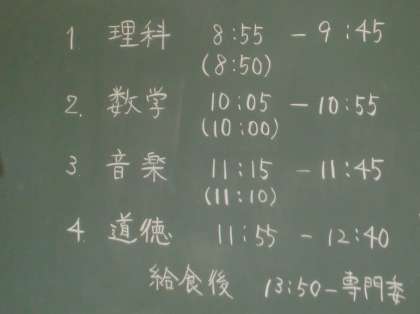 1 理科 8:55 - 9:45
(8:50)
2. 数学 10:05 - 10:55
(10:00)
3 音楽 11:15 - 11:45
(11:10)
4. 道徳 11:55 - 12:40
給食後 13:50 - 専門委